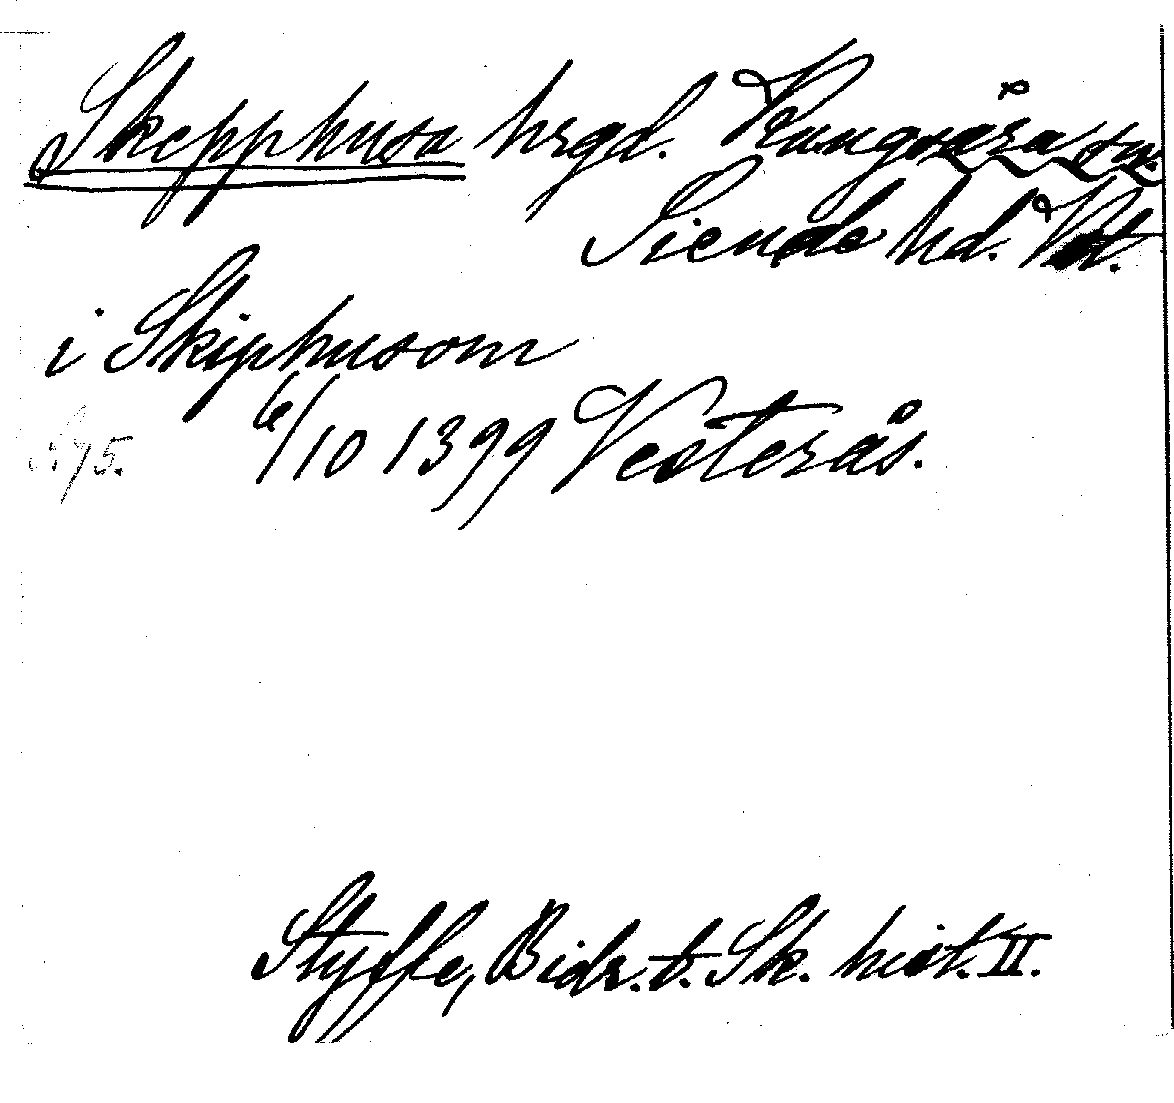 Skepphusa hrgd. Kungsåra sn.
Siende hd. Vstm.
i Skiphusom
6/10 1399 Vesterås.
s. 75.
Styffe, Bidr. t. Sk. hist. II.